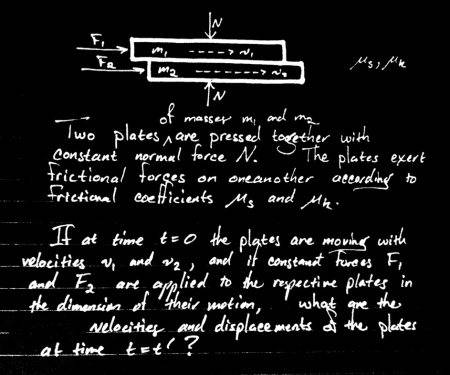 N
F₁ m₁ ----> v₁
F₂ m₂ ----> v₂
μs, μk
N
of masses m₁ and m₂
Two plates ^ are pressed together with
constant normal force N. The plates exert
frictional forces on oneanother according to
frictional coefficients μs and μk.
If at time t=0 the plates are moving with
velocities v₁ and v₂, and if constant forces F₁
and F₂ are applied to the respective plates in
the dimension of their motion, what are the
velocities and displacements of the plates
at time t=t' ?